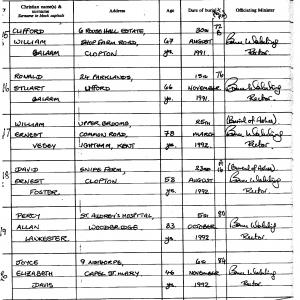 Christian name(s) & surname Address Age Date of burial Officiating Minister
Surname in block capitals
CLIFFORD 6 ROUSE HALL ESTATE, 30th
WILLIAM SHOP FARM ROAD, 67 AUGUST
BALAAM CLOPTON yrs. 1991 Rector
RONALD 24 PARKLANDS, 15th 76
STUART UFFORD 66 NOVEMBER
BALAAM yrs. 1991. Rector.
WILLIAM UPPER GROOMS, 25th (Burial of Ashes)
ERNEST COMMON ROAD, 78 MARCH
VESEY IGHTHAM, KENT yrs. 1992 Rector.
18
DAVID SNIPE FARM, 23rd (Burial of Ashes)
ERNEST CLOPTON 58 AUGUST
FOSTER. yrs. 1992 Rector.
PERCY ST. AUDREY'S HOSPITAL, 5th 80
ALLAN WOODBRIDGE 83 OCTOBER
LANKESTER. yrs. 1992 Rector.
JOYCE 9
ELIZABETH CAPEL ST. MARY. 46 NOVEMBER
DAVIS yrs. 1992 Rector.